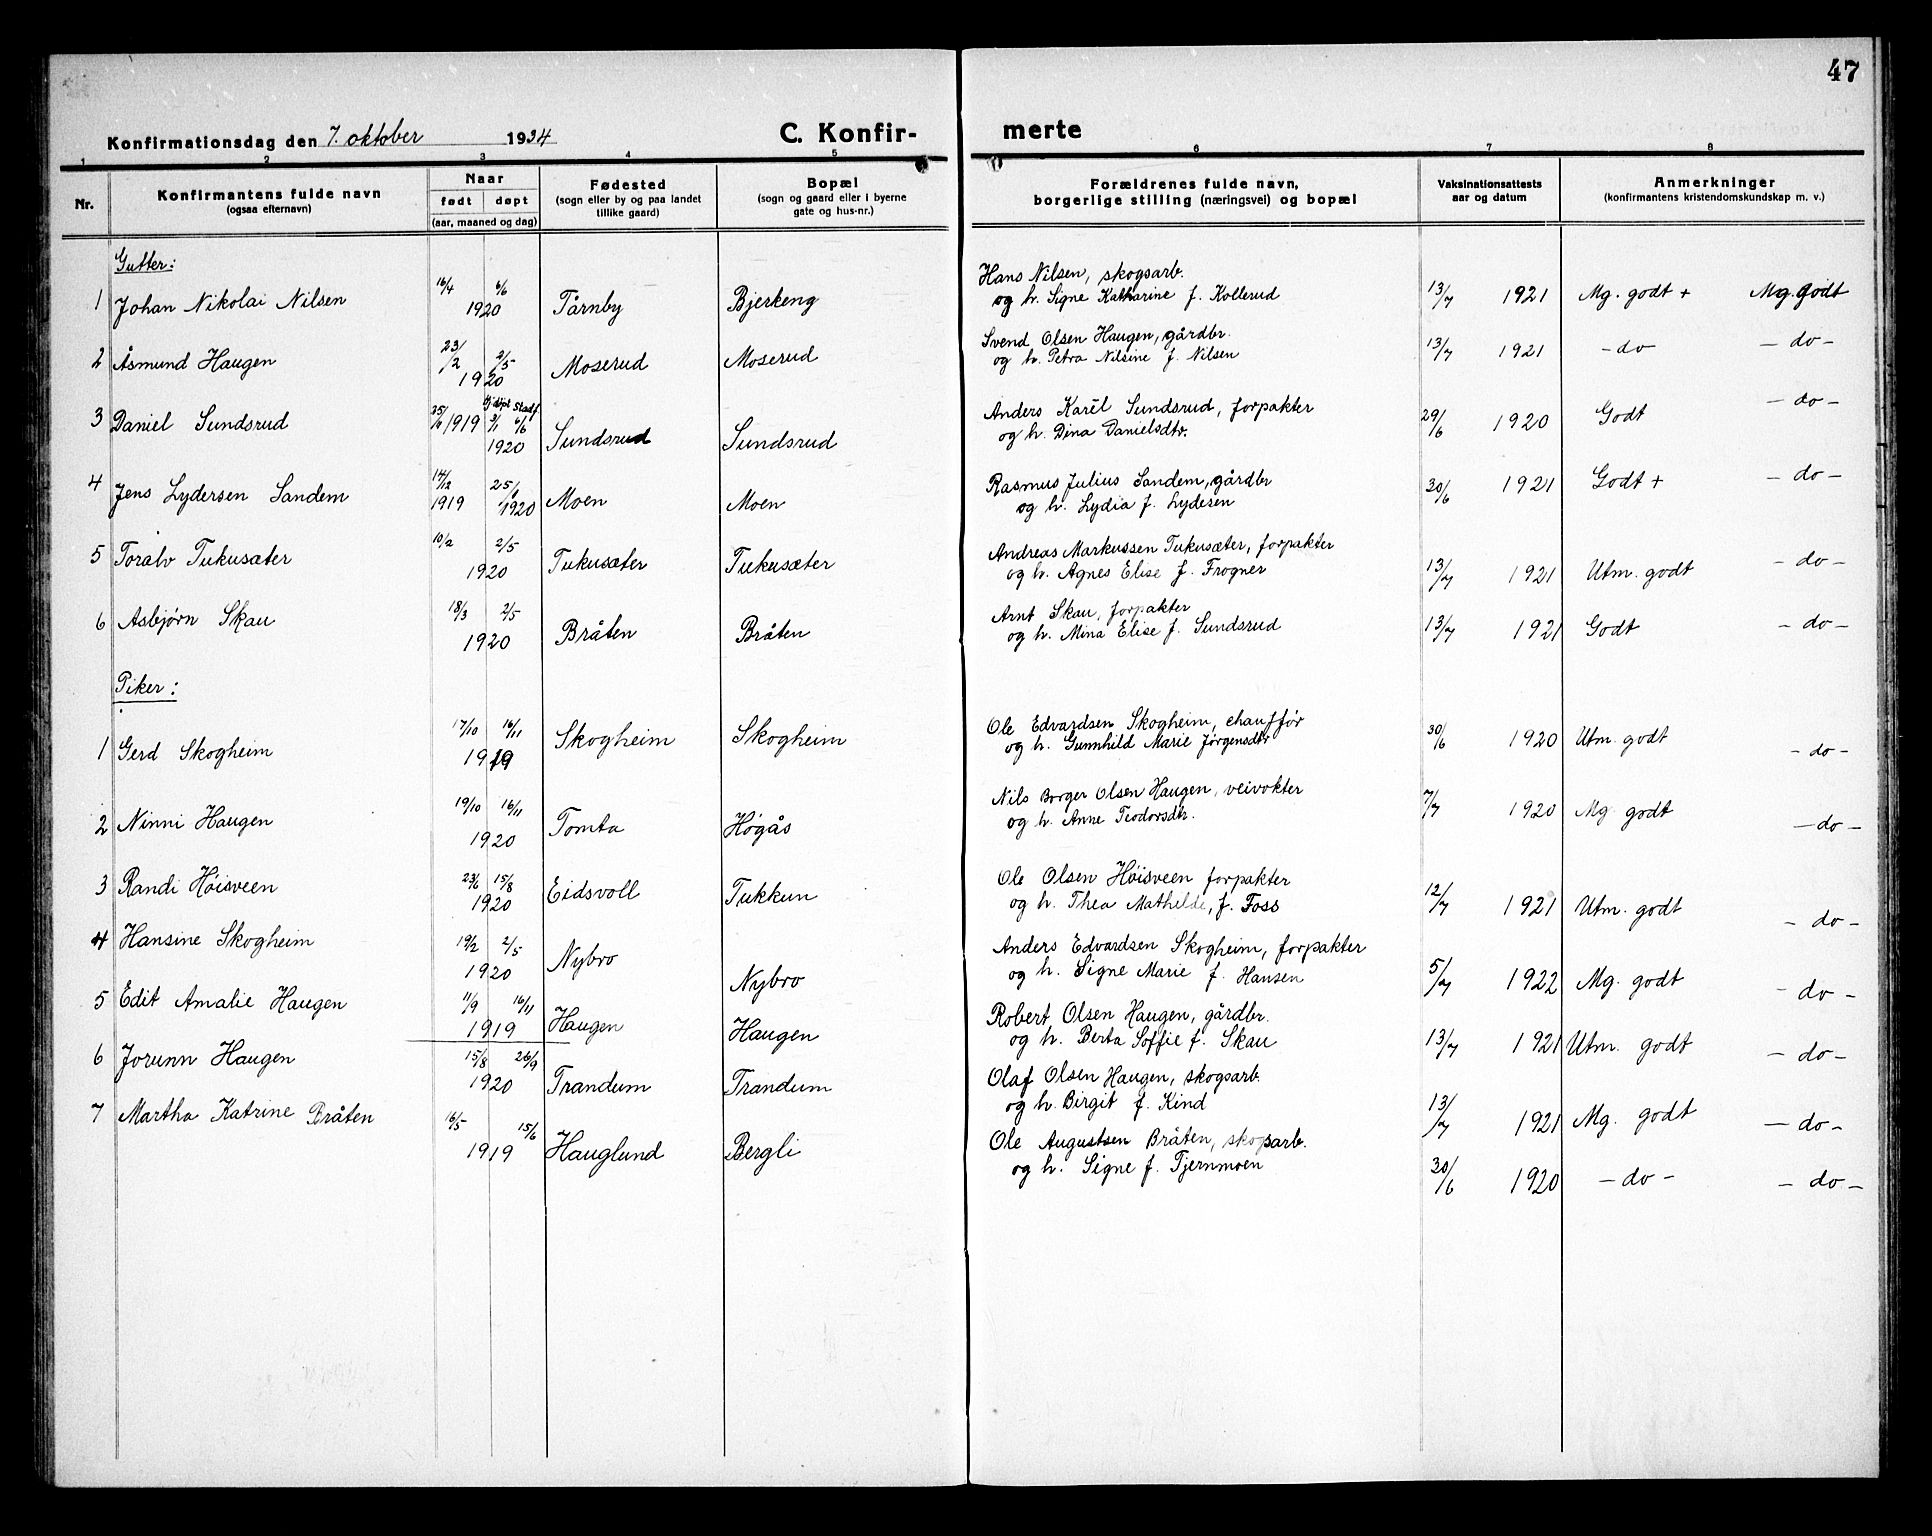 47
Konfirmationsdag den 7. oktober 1934 C. Konfir- merte
1 2 3 4 5 6 7 8
Nr. Konfirmantens fulde navn (ogsaa efternavn) Naar født døpt (aar, maaned og dag) Fødested (sogn eller by og paa landet tillike gaard) Bopæl (sogn og gaard eller i byerne gate og hus-nr.) Forældrenes fulde navn, borgerlige stilling (næringsvei) og bopæl Vaksinationsattests aar og datum Anmerkninger (konfirmantens kristendomskundskap m. v.)
Gutter:
Hans Nilsen, skogsarb.
1 Johan Nikolai Nilsen 16/4 6/6 1920 Tårnby Bjerkeng og h. Signe Katharine f. Kollerud 13/7 1921 Mg. godt + Mg. godt
Svend Olsen Haugen, gårdbr.
2 Åsmund Haugen 23/2 2/5 1920 Moserud Moserud og h. Petra Nilsine f. Nilsen 13/7 1921 - do - - do -
Anders Karel Sundsrud, forpakter
3 Daniel Sundsrud 25/6 1919 3/1 Stadf. 6/6 1920 Sundsrud Sundsrud og h. Dina Danielsdtr. 29/6 1920 Godt - do -
Rasmus Julius Sandem, gårdbr
4 Jens Lydersen Sandem 14/12 1919 25/ 1920 Moen Moen og h. Lydia f. Lydesen 30/6 1921 Godt + - do -
Andreas Markussen Tukusæter, forpakter
5 Toralv Tukusæter 10/2 2/5 1920 Tukusæter Tukusæter og h. Agnes Elise f. Frogner 13/7 1921 Utm. godt - do -
Arnt Skau, forpakter
6 Asbjørn Skau 18/3 2/5 1920 Bråten Bråten og h. Mina Elise f. Sundsrud 13/7 1921 Godt - do -
Piker:
Ole Edvardsen Skogheim, chauffør
1 Gerd Skogheim 17/10 16/11 1919 Skogheim Skogheim og h. Gunnhild Marie Jørgensdtr 30/6 1920 Utm. godt - do -
Nils Borger Olsen Haugen, veivokter
2 Ninni Haugen 19/10 16/11 1920 Tomta Høgås og h. Anne Teodorsdtr. 7/7 1920 Mg godt - do -
Ole Olsen Høisveen forpakter
3 Randi Høisveen 23/6 15/8 1920 Eidsvoll Tukkun og h. Thea Mathilde, f. Foss 12/7 1921 Utm. godt - do -
Anders Edvardsen Skogheim, forpakter
4 Hansine Skogheim 19/2 2/5 1920 Nybro Nybro og h. Signe Marie f. Hansen 5/7 1922 Mg. godt - do -
Robert Olsen Haugen, gårdbr.
5 Edit Amalie Haugen 11/9 16/11 1919 Haugen Haugen og h. Berta Soffie f. Skau 13/7 1921 Utm. godt - do -
Olaf Olsen Haugen, skogsarb.
6 Jorunn Haugen 15/8 26/9 1920 Trandum Trandum og h. Birgit f. Kind 13/7 1921 Mg. godt - do -
Ole Augustsen Bråten, skogsarb.
7 Martha Katrine Bråten 16/5 15/6 1919 Hauglund Bergli og h. Signe f. Tjernmoen 30/6 1920 - do - - do -